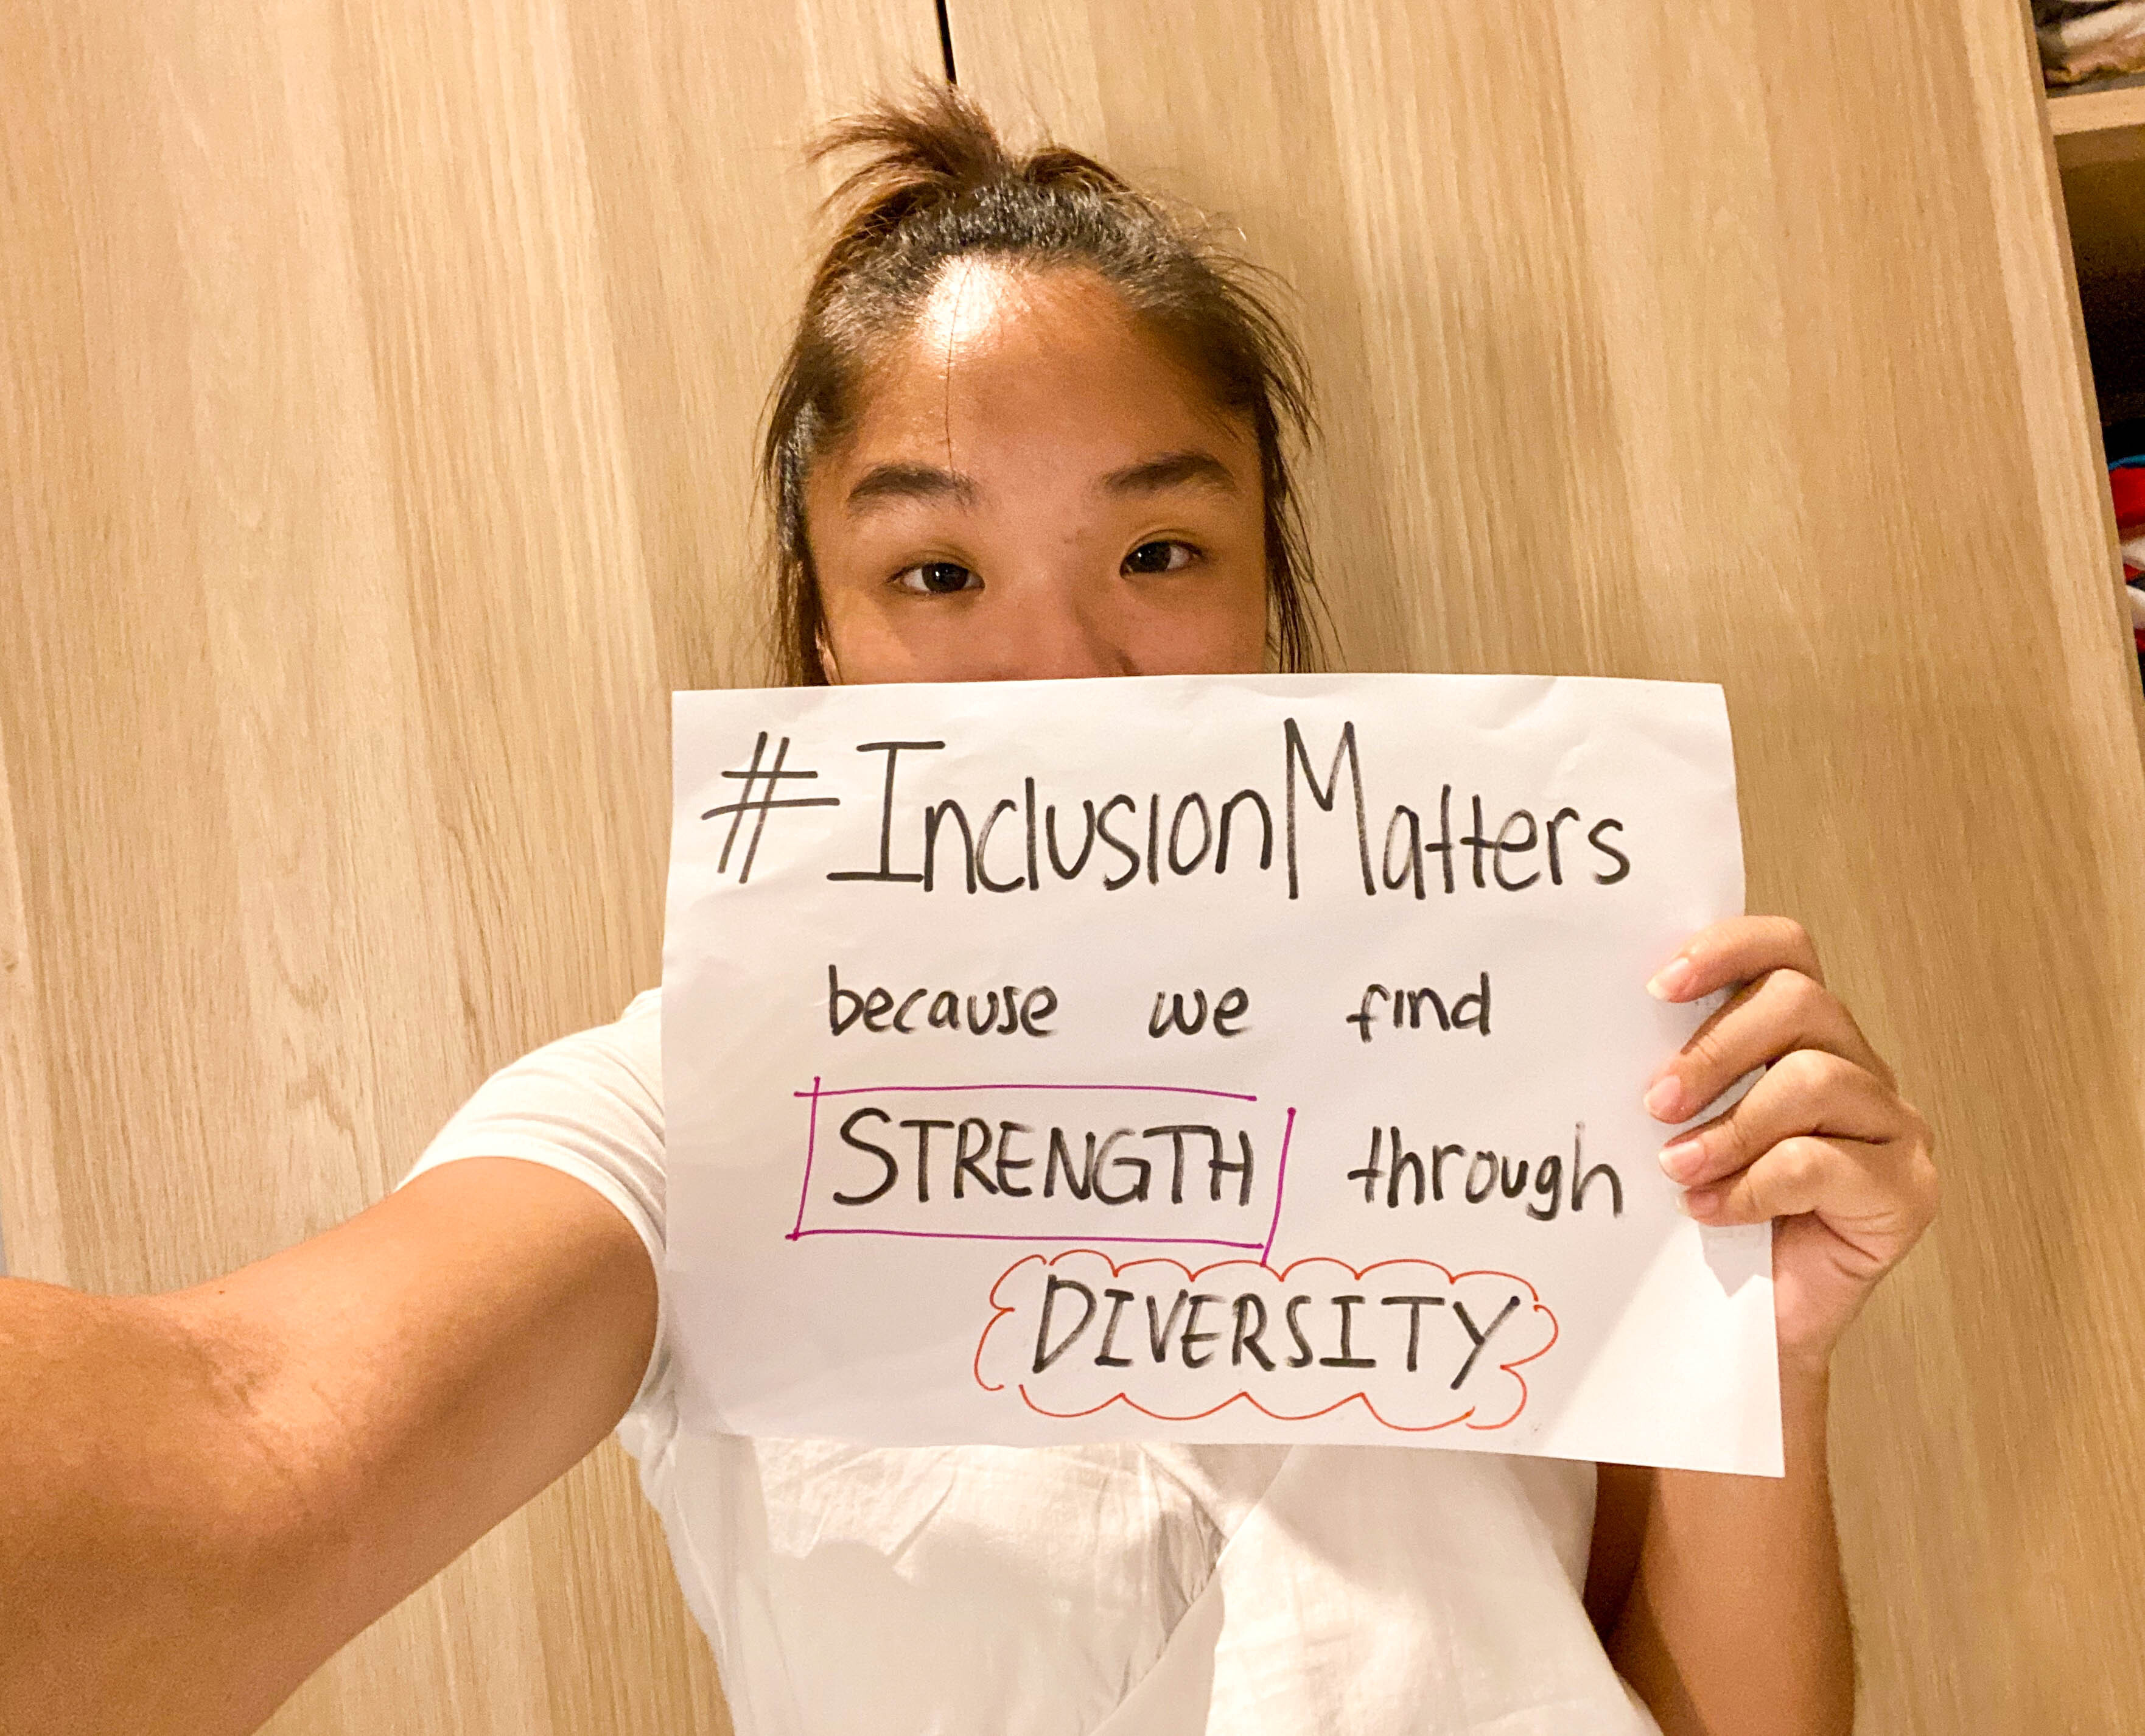 #InclusionMatters
because we find
STRENGTH through
DIVERSITY